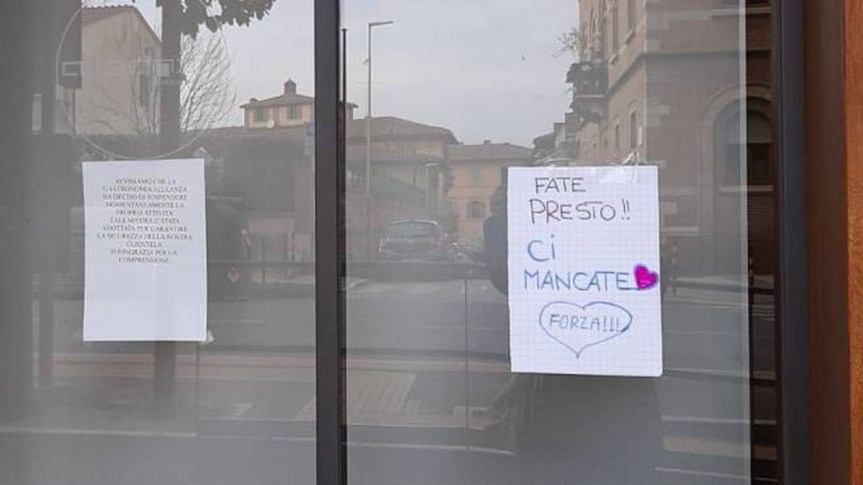 AVVISIAMO CHE LA
GASTRONOMIA ALLEANZA
HA DECISO DI SOSPENDERE
MOMENTANEAMENTE LA
PROPRIA ATTIVITA'
TALE MISURA E' STATA
ADOTTATA PER GARANTIRE
LA SICUREZZA DELLA NOSTRA
CLIENTELA
SI RINGRAZIA PER LA
COMPRENSIONE
FATE
PRESTO!!
Ci
MANCATE
FORZA!!!